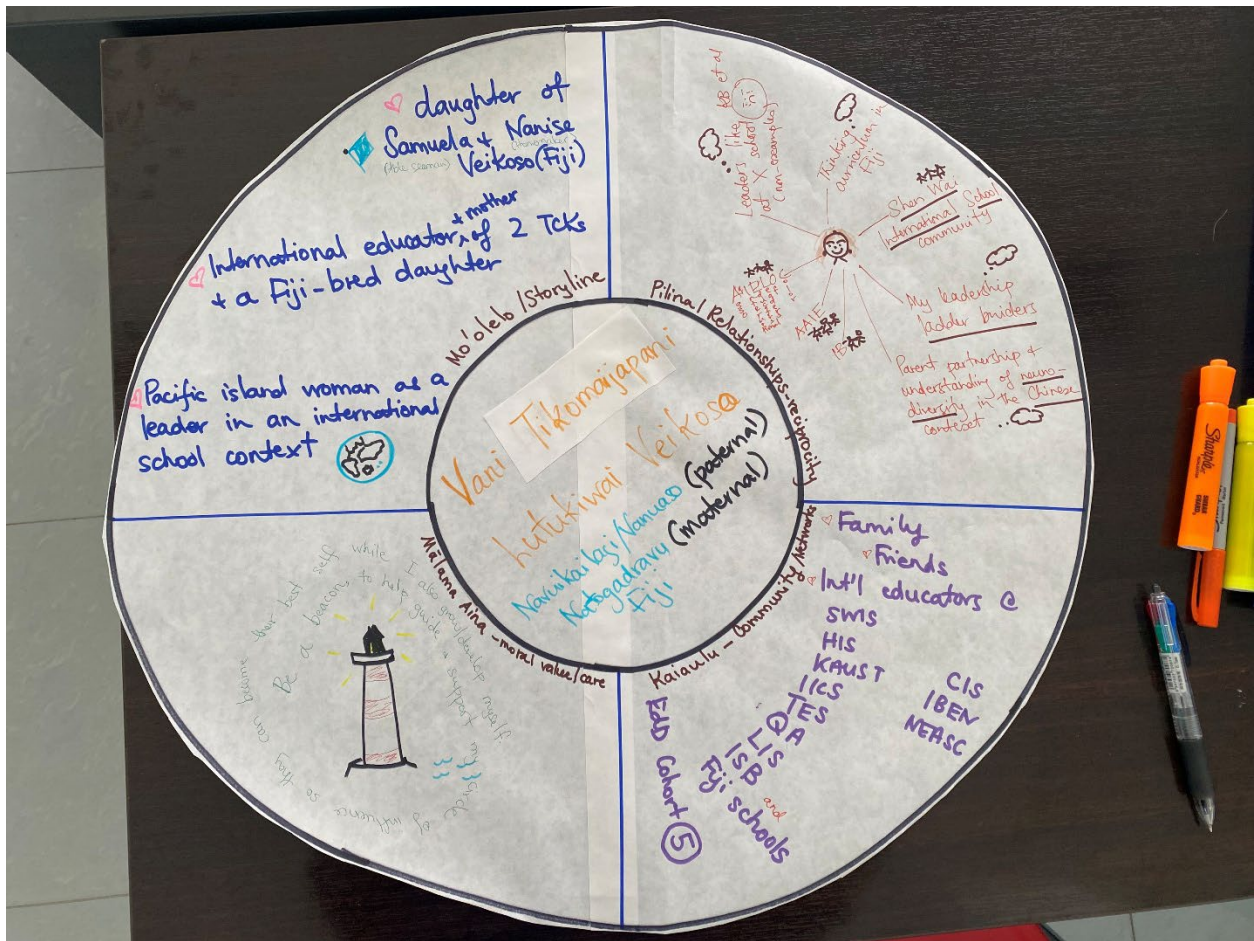 daughter of
Samuela + Nanise
(Able Seaman) (Homemaker)
Veikoso (Fiji)
International educator + mother of 2 TCKs
+ a Fiji-bred daughter
Pacific island woman as a
leader in an international
school context
Mo'olelo/Storyline
Pilina/Relationships-reciprocity
Leaders like KB et al
at X school
(non-examples)
Thinking
curriculum in
Fiji
Shen Wai
International School
community
My leadership
ladder builders
Parent partnership +
understanding of neuro-
diversity in the Chinese
context
IB
AAIE
Vani Tikomaijapani
Lutukiwai Veikoso
Navuikailagi/Nanuaso (paternal)
Natogadravu (maternal)
Fiji
Mālama Aina - moral value/care
Be a beacon, to help guide + support my circle of influence so they can become their best self while I also grow/develop myself.
Kaiaulu - Community/Networks
Family
Friends
Int'l educators @
SWIS
HIS
KAUST
IICS
TES
QA
LIS
ISB and
Fiji schools
CIS
IBEN
NEASC
EdD Cohort 5
Sharpie